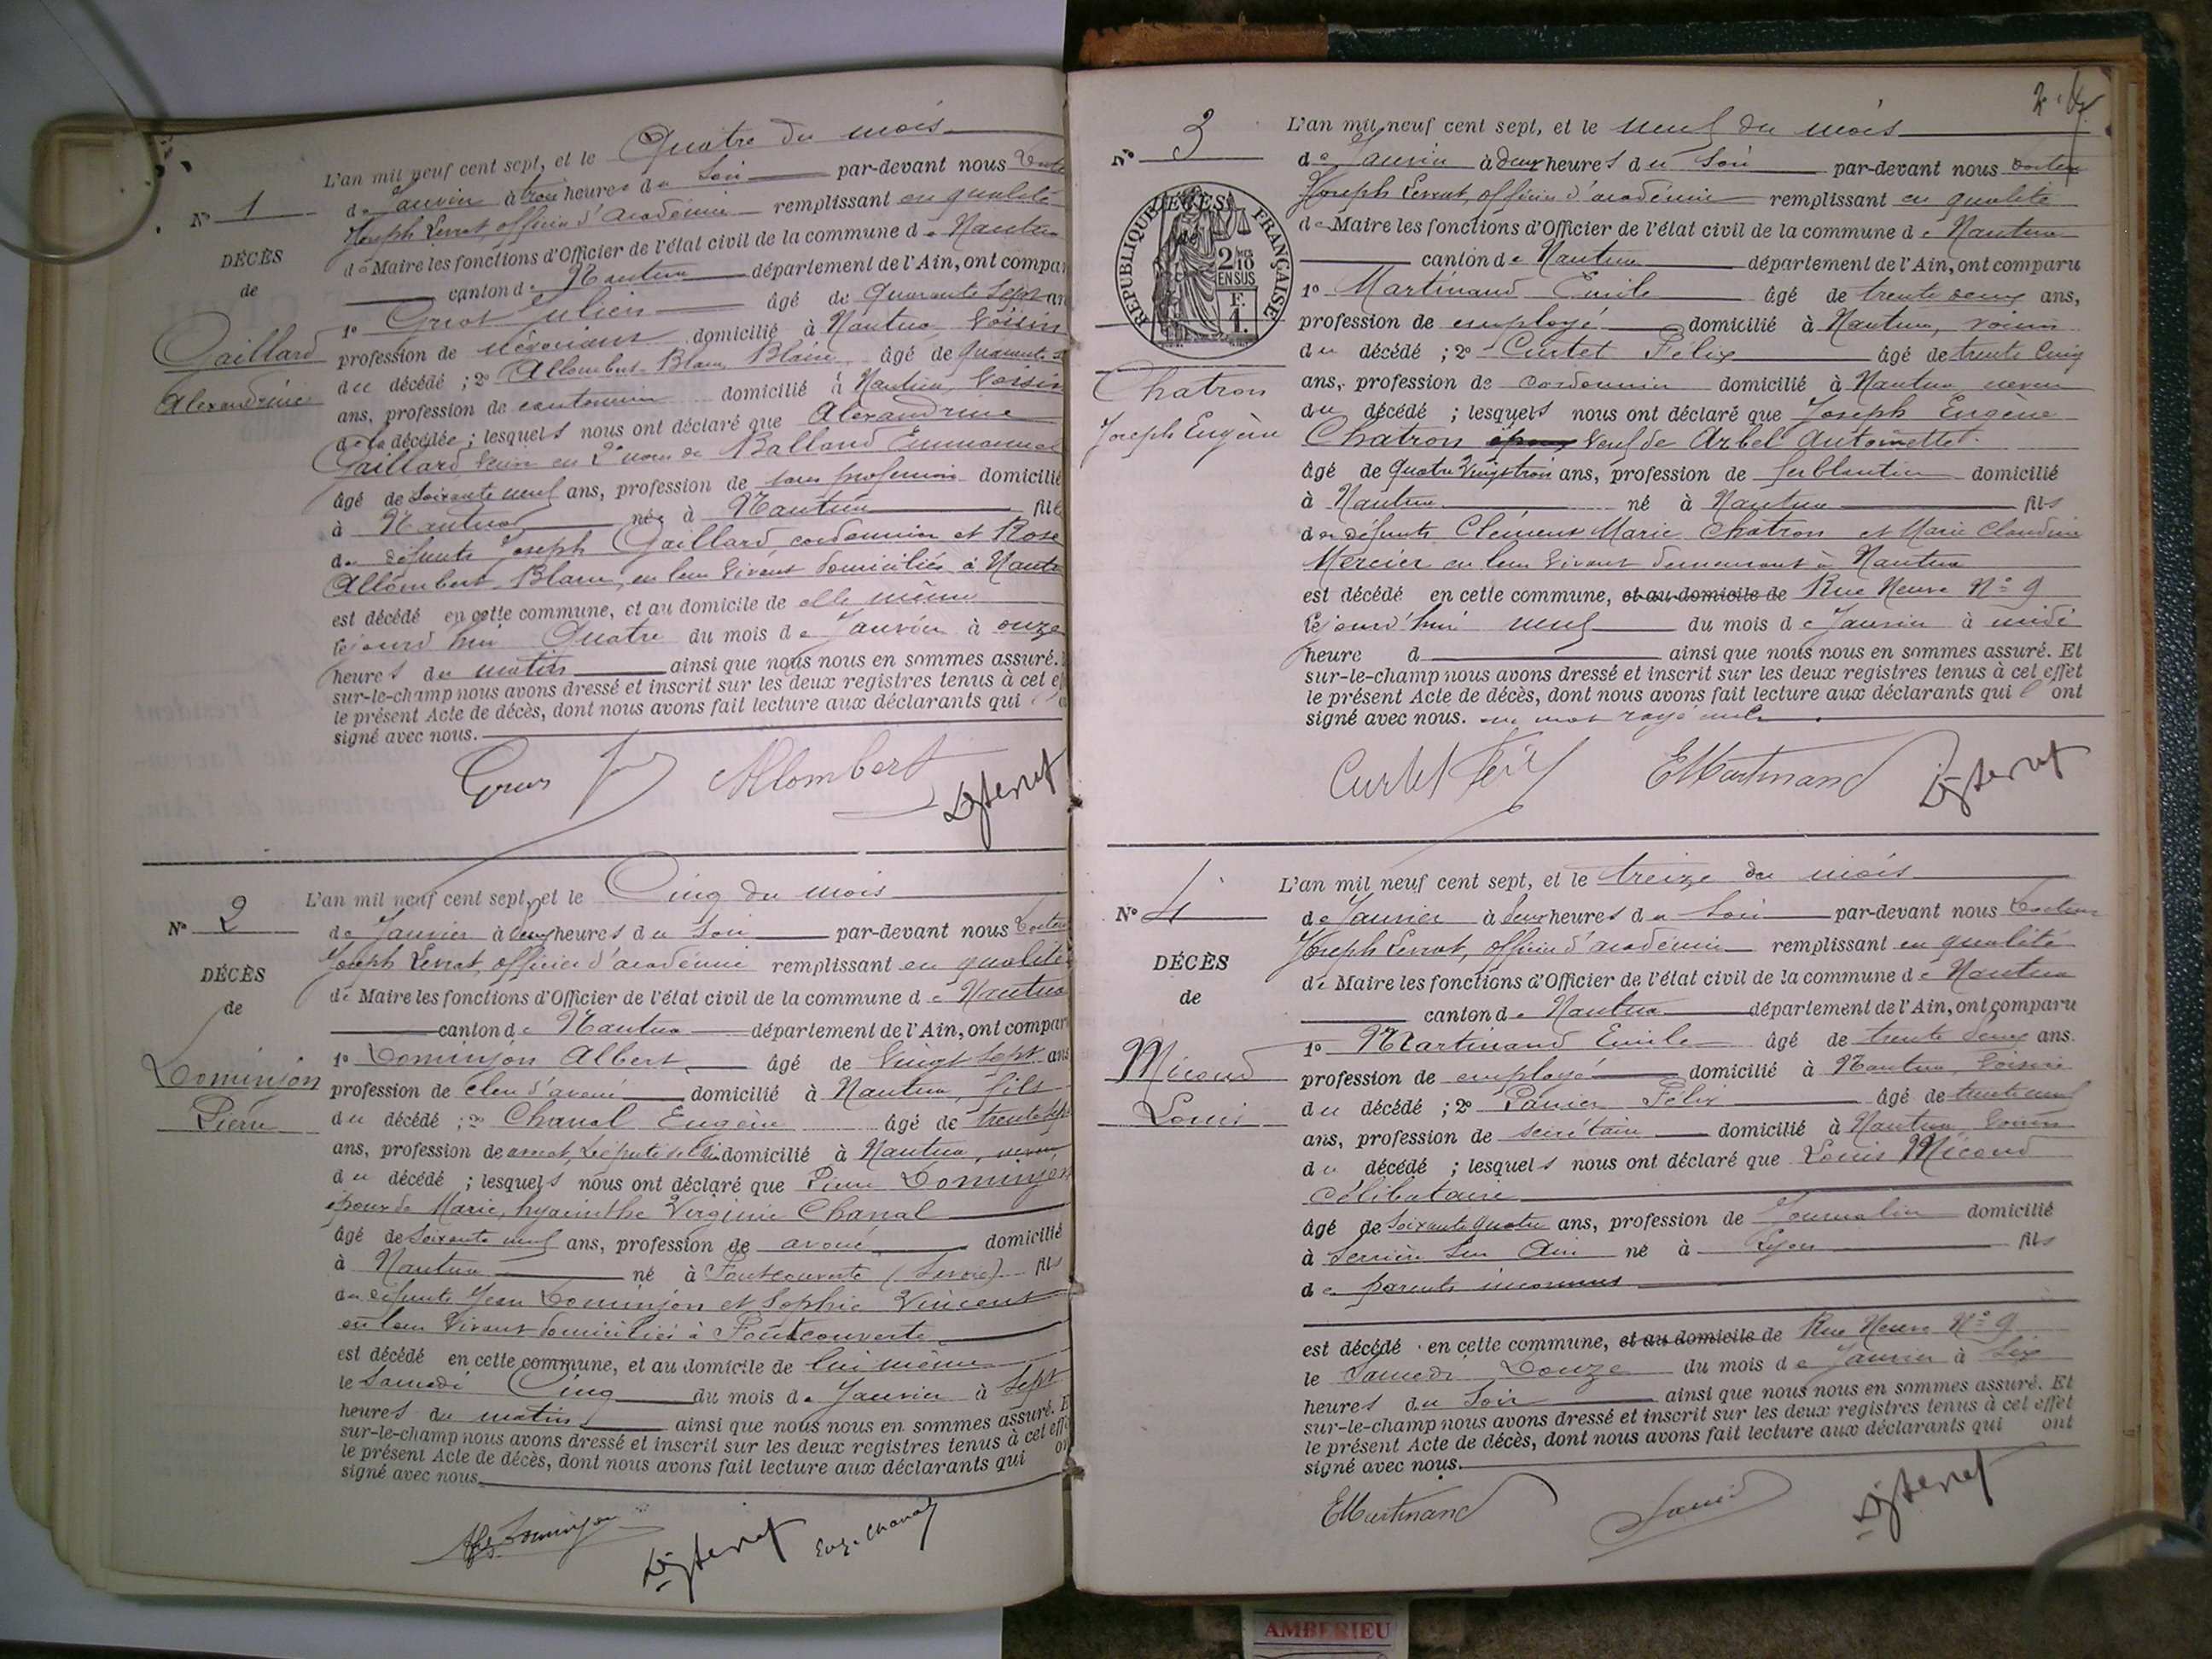 L'an mil neuf cent sept, et le Quatre du mois
N° 1
de Janvier à trois heures du Soir par-devant nous
Joseph officier d'académie remplissant en qualité
DÉCÈS
de Maire les fonctions d'Officier de l'état civil de la commune de Nantua
de
canton de Nantua département de l'Ain, ont compar
1° Julien âgé de quarante sept an
Gaillard
profession de négociant domicilié à Nantua Voisin
Alexandrine
du décédé ; 2° Allombert Blanc Blaise âgé de quarante
ans, profession de cantonnier domicilié à Nantua, Voisin
de la décédée ; lesquels nous ont déclaré que Alexandrine
Gaillard en 2e de Balland Emmanuel
âgé de Soixante neuf ans, profession de sans profession domicilié
à Nantua née à Nantua fille
de défunts Joseph Gaillard cordonnier et Rose
Allombert Blanc, en leur vivant domiciliés à Nantua
est décédé en cette commune, et au domicile de elle même
le jourd'hui Quatre du mois de Janvier à onze
heures du matin ainsi que nous nous en sommes assuré.
sur-le-champ nous avons dressé et inscrit sur les deux registres tenus à cet ef
le présent Acte de décès, dont nous avons fait lecture aux déclarants qui
signé avec nous.
Allombert
L'an mil neuf cent sept, et le Cinq du mois
N° 2
de Janvier à deux heures du Soir par-devant nous Docteur
Joseph officier d'académie remplissant en qualité
DÉCÈS
de Maire les fonctions d'Officier de l'état civil de la commune de Nantua
de
canton de Nantua département de l'Ain, ont compar
1° Dominjon Albert âgé de Vingt sept ans
Dominjon
profession de clerc d'avoué domicilié à Nantua, fils
Pierre
du décédé ; 2° Chanal Eugène âgé de trente sept
ans, profession de avocat, député de l'Ain domicilié à Nantua, neveu
du décédé ; lesquels nous ont déclaré que Pierre Dominjon
époux de Marie, hyacinthe Virginie Chanal
âgé de Soixante neuf ans, profession de avoué domicilié
à Nantua né à Fontcouverte (Savoie) fils
de défunts Jean Dominjon et Sophie Vincent
en leur vivant domiciliés à Fontcouverte
est décédé en cette commune, et au domicile de lui même
le Samedi Cinq du mois de Janvier à Sept
heures du matin ainsi que nous nous en sommes assuré. E
sur-le-champ nous avons dressé et inscrit sur les deux registres tenus à cet eff
le présent Acte de décès, dont nous avons fait lecture aux déclarants qui on
signé avec nous.
Dominjon
Eug. Chanal
2
N° 3
L'an mil neuf cent sept, et le neuf du mois
de Janvier à deux heures du Soir par-devant nous Docteur
Joseph officier d'académie remplissant en qualité
RÉPUBLIQUE FRANÇAISE
2/10 EN SUS
F. 1.
de Maire les fonctions d'Officier de l'état civil de la commune de Nantua
canton de Nantua département de l'Ain, ont comparu
1° Martinand Emile âgé de trente deux ans,
profession de employé domicilié à Nantua, voisin
du décédé ; 2° Curtet Félix âgé de trente cinq
Chatron
ans, profession de cordonnier domicilié à Nantua neveu
Joseph Eugène
du décédé ; lesquels nous ont déclaré que Joseph Eugène
Chatron époux Veuf de Arbel Antoinette
âgé de quatre vingt trois ans, profession de ferblantier domicilié
à Nantua né à Nantua fils
de défunts Clément Marie Chatron et Marie Claudine
Mercier en leur vivant demeurant à Nantua
est décédé en cette commune, et au domicile de Rue Neuve N° 9
le jourd'hui neuf du mois de Janvier à midi
heure d ainsi que nous nous en sommes assuré. Et
sur-le-champ nous avons dressé et inscrit sur les deux registres tenus à cet effet
le présent Acte de décès, dont nous avons fait lecture aux déclarants qui l'ont
signé avec nous. un mot rayé nul
Curtet Félix EMartinand
L'an mil neuf cent sept, et le treize du mois
N° 4
de Janvier à deux heures du Soir par-devant nous Docteur
Joseph officier d'académie remplissant en qualité
DÉCÈS
de Maire les fonctions d'Officier de l'état civil de la commune de Nantua
de
canton de Nantua département de l'Ain, ont comparu
1° Martinand Emile âgé de trente deux ans.
Micoud
profession de employé domicilié à Nantua, Voisin
Louis
du décédé ; 2° Félix âgé de trente neuf
ans, profession de secrétaire domicilié à Nantua, voisin
du décédé ; lesquels nous ont déclaré que Louis Micoud
célibataire
âgé de Soixante quatre ans, profession de Journalier domicilié
à Serrières sur Ain né à Lyon fils
de parents inconnus
est décédé en cette commune, et au domicile de Rue Neuve N° 9
le Samedi Douze du mois de Janvier à Six
heures du Soir ainsi que nous nous en sommes assuré. Et
sur-le-champ nous avons dressé et inscrit sur les deux registres tenus à cet effet
le présent Acte de décès, dont nous avons fait lecture aux déclarants qui ont
signé avec nous.
EMartinand
AMBERIEU